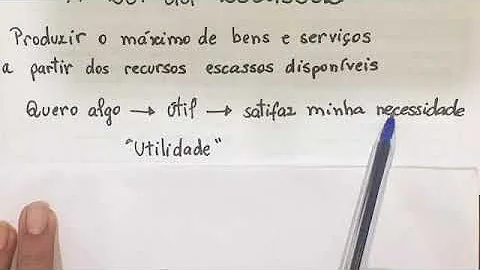 Produzir o máximo de bens e serviços
a partir dos recursos escassos disponíveis
Quero algo → útil → satifaz minha necessidade
"Utilidade"